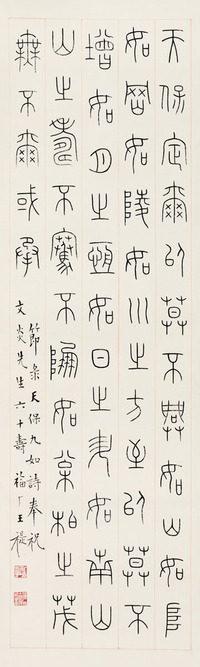 天保定爾以莫不興如山如阜
如岡如陵如川之方至以莫不
增如月之恆如日之升如南山
山之壽不騫不崩如松柏之茂
無不爾或承
節錄天保九如詩奉祝
文炎先生六十壽 福厂王禔